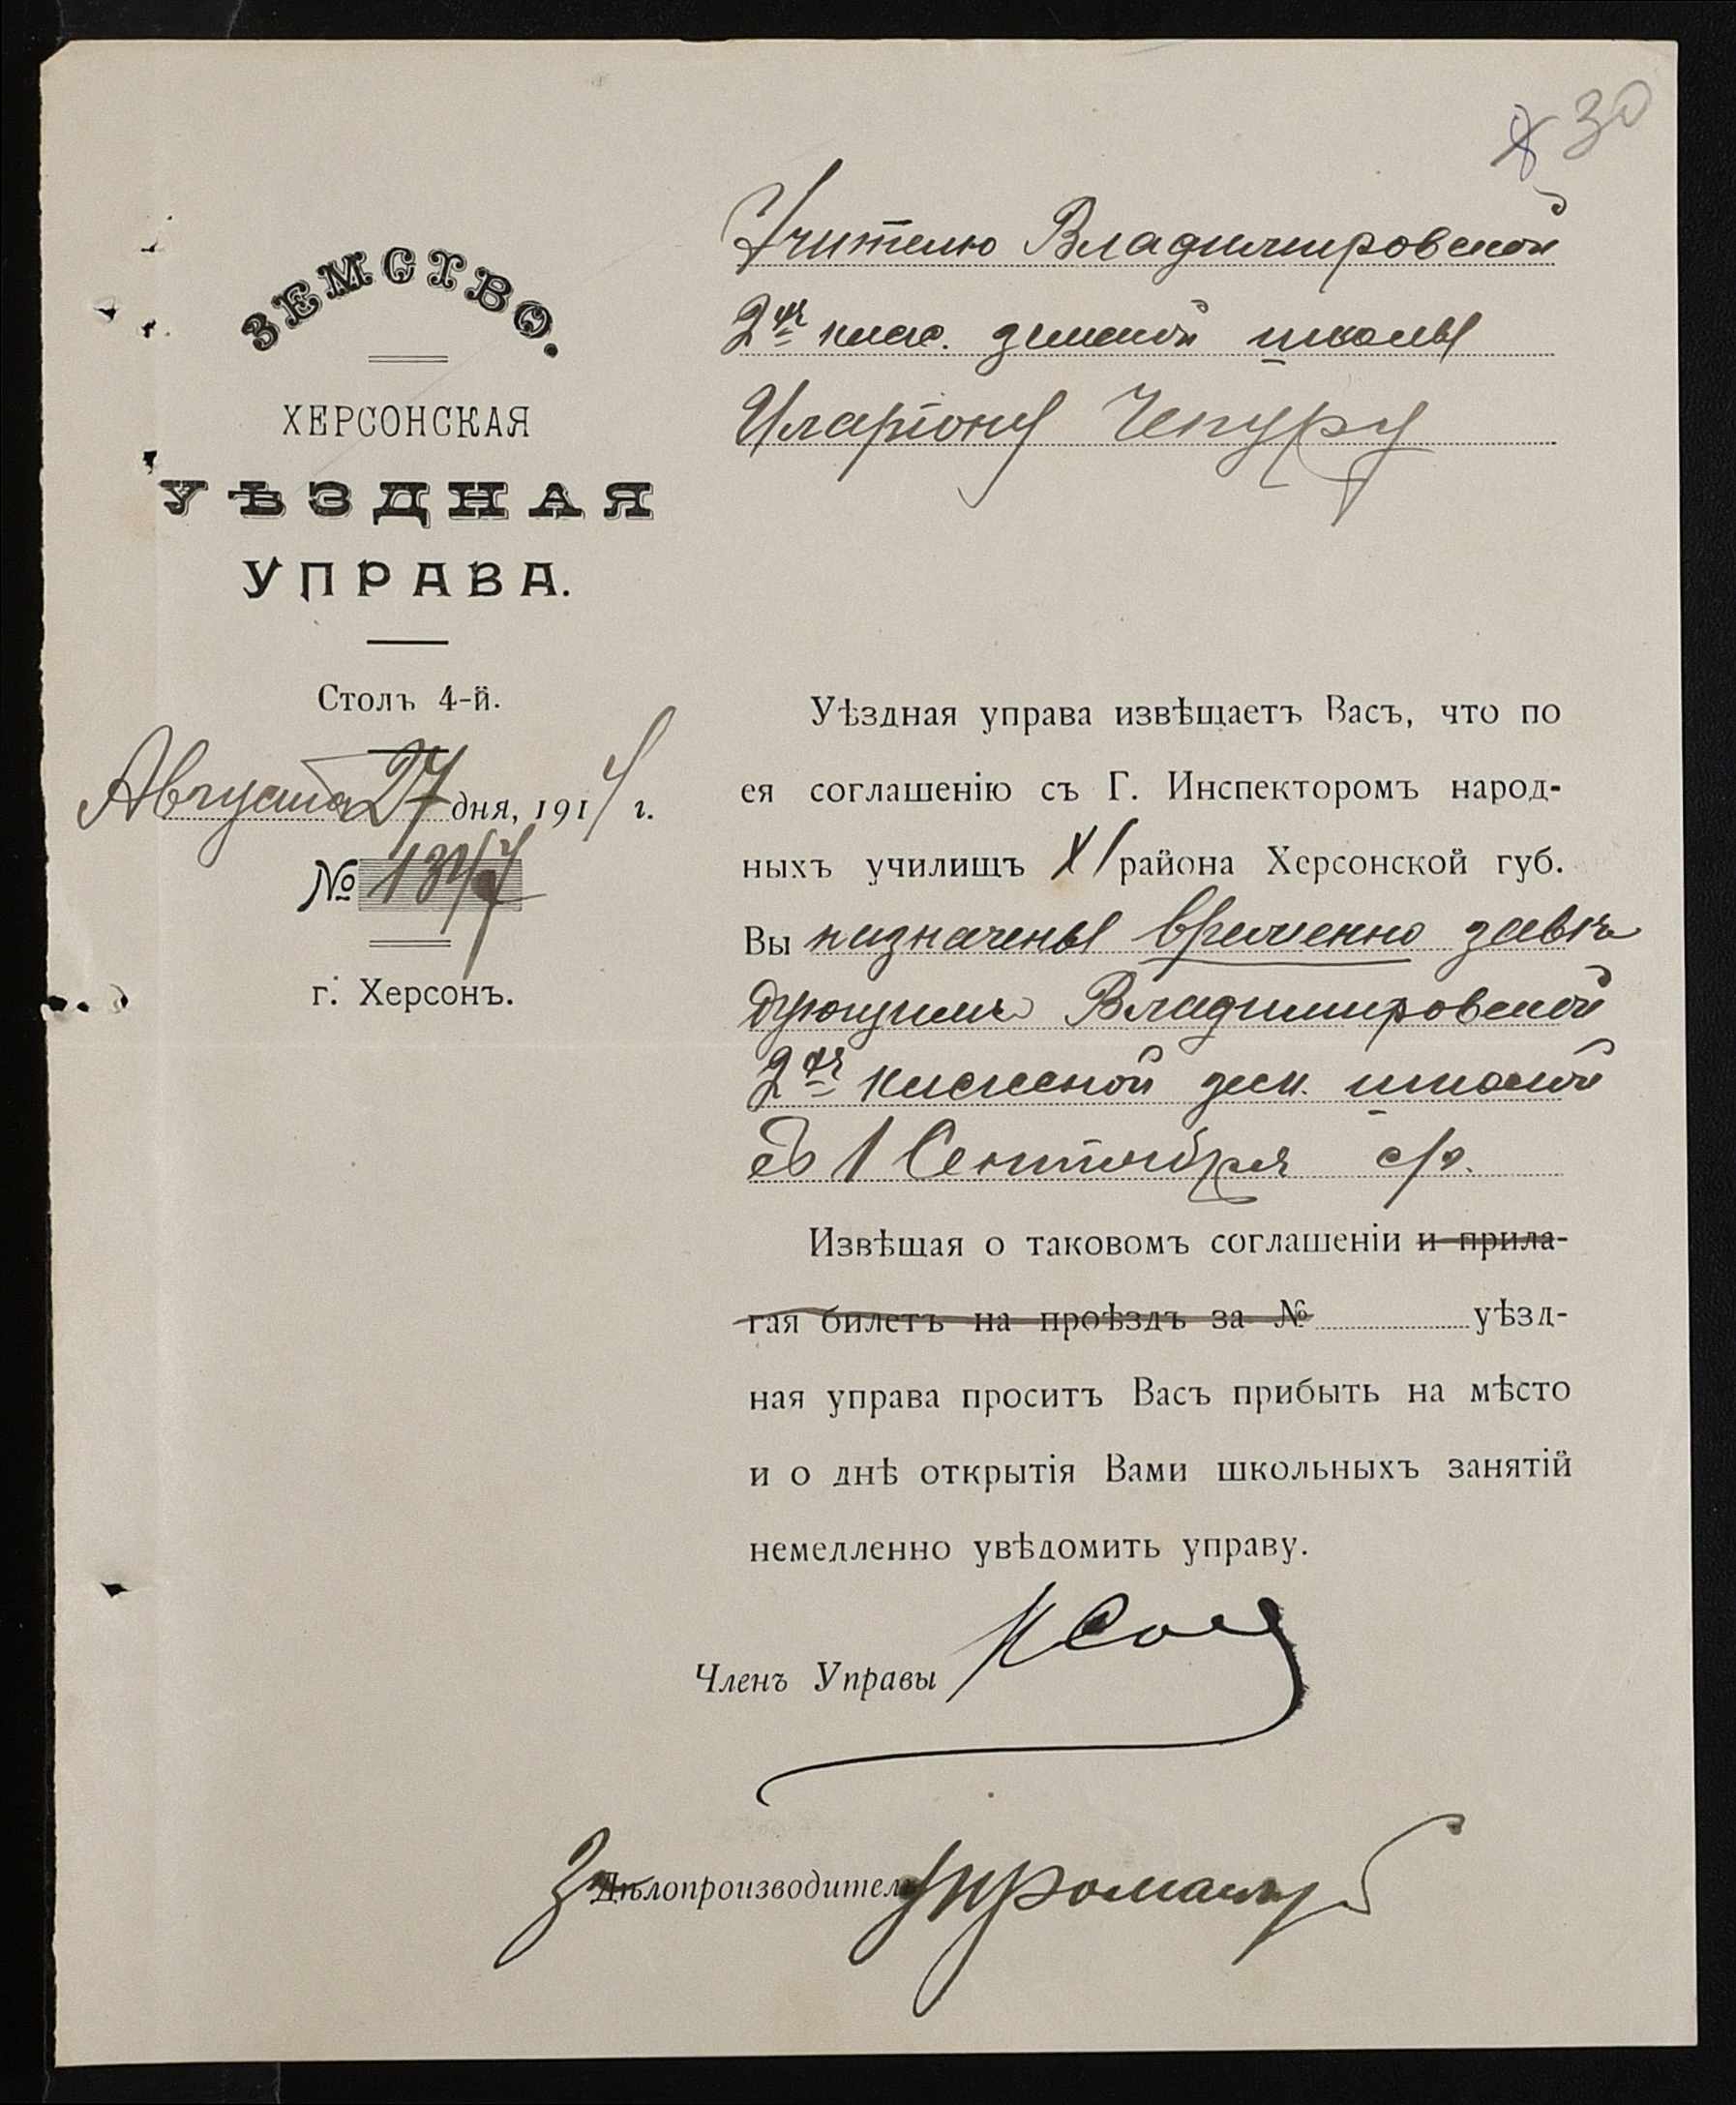 30
ЗЕМСТВО.
ХЕРСОНСКАЯ
УѢЗДНАЯ
УПРАВА.
Столъ 4-й.
Августа 27 дня, 1914 г.
№ 1347
г. Херсонъ.
Учителю Владимировской
2хъ класс. земской школы
Иларіону Чепуру
Уѣздная управа извѣщаетъ Васъ, что по
ея соглашенію съ Г. Инспекторомъ народ-
ныхъ училищъ XI района Херсонской губ.
Вы назначены временно завѣ
дующимъ Владимировской
2хъ классной зем. школой
съ 1 Сентября с/г.
Извѣщая о таковомъ соглашеніи и прила-
гая билетъ на проѣздъ за № уѣзд-
ная управа проситъ Васъ прибыть на мѣсто
и о днѣ открытія Вами школьныхъ занятій
немедленно увѣдомить управу.
Членъ Управы
Дѣлопроизводитель